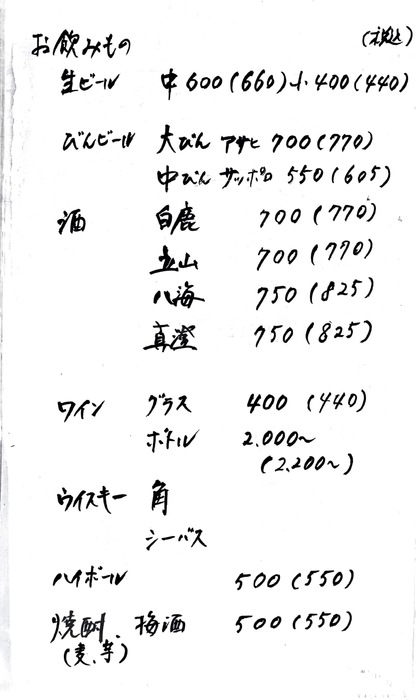 お飲みもの (税込)
生ビール 中 600(660) 小 400(440)
びんビール 大びん アサヒ 700(770)
中びん サッポロ 550(605)
酒 白鹿 700(770)
立山 700(770)
八海 750(825)
真澄 750(825)
ワイン グラス 400 (440)
ボトル 2.000〜
(2.200〜)
ウイスキー 角
シーバス
ハイボール 500(550)
焼酎、梅酒 500(550)
(麦、芋)